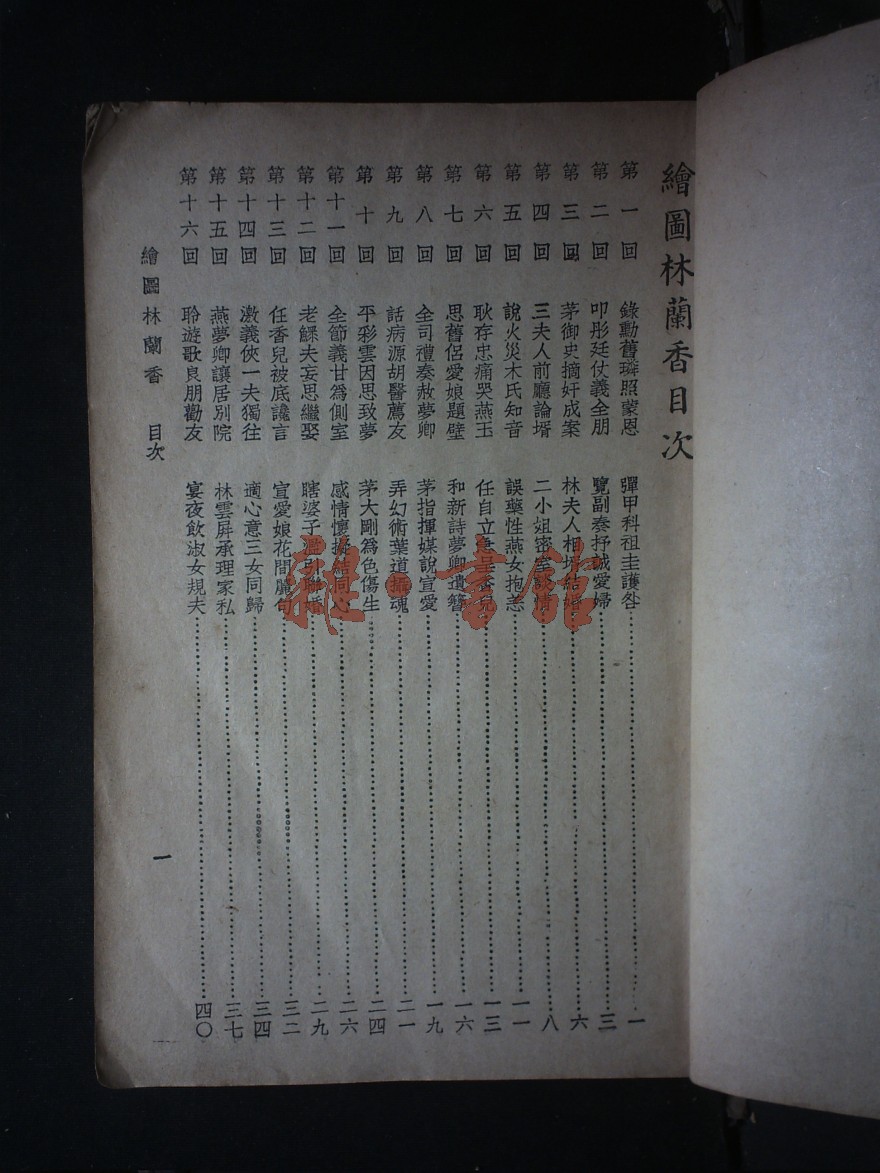 繪圖林蘭香目次
第一回 錄勳舊璘照蒙恩 彈甲科祖圭護咎 一
第二回 叩彤廷仗義全朋 覽副奏抒誠愛婦 三
第三回 茅御史摘奸成案 林夫人相坤結婚 六
第四回 三夫人前廳論壻 二小姐密室談情 八
第五回 說火災木氏知音 誤藥性燕女抱恙 一一
第六回 耿存忠痛哭燕玉 任自立妻呈香兒 一三
第七回 思舊侶愛娘題壁 和新詩夢卿遺簪 一六
第八回 全司禮奏赦夢卿 茅指揮媒說宣愛 一九
第九回 話病源胡醫薦友 弄幻術葉道攝魂 二一
第十回 平彩雲因思致夢 茅大剛爲色傷生 二四
第十一回 全節義甘爲側室 感情懷擬結同心 二六
第十二回 老鰥夫妄思繼娶 瞎婆子引聯婚 二九
第十三回 任香兒被底讒言 宣愛娘花間麗句 三二
第十四回 激義俠一夫獨往 適心意三女同歸 三四
第十五回 燕夢卿讓居別院 林雲屏承理家私 三七
第十六回 聆遊歌良朋勸友 宴夜飲淑女規夫 四〇
繪圖林蘭香 目次
一
雜·書館